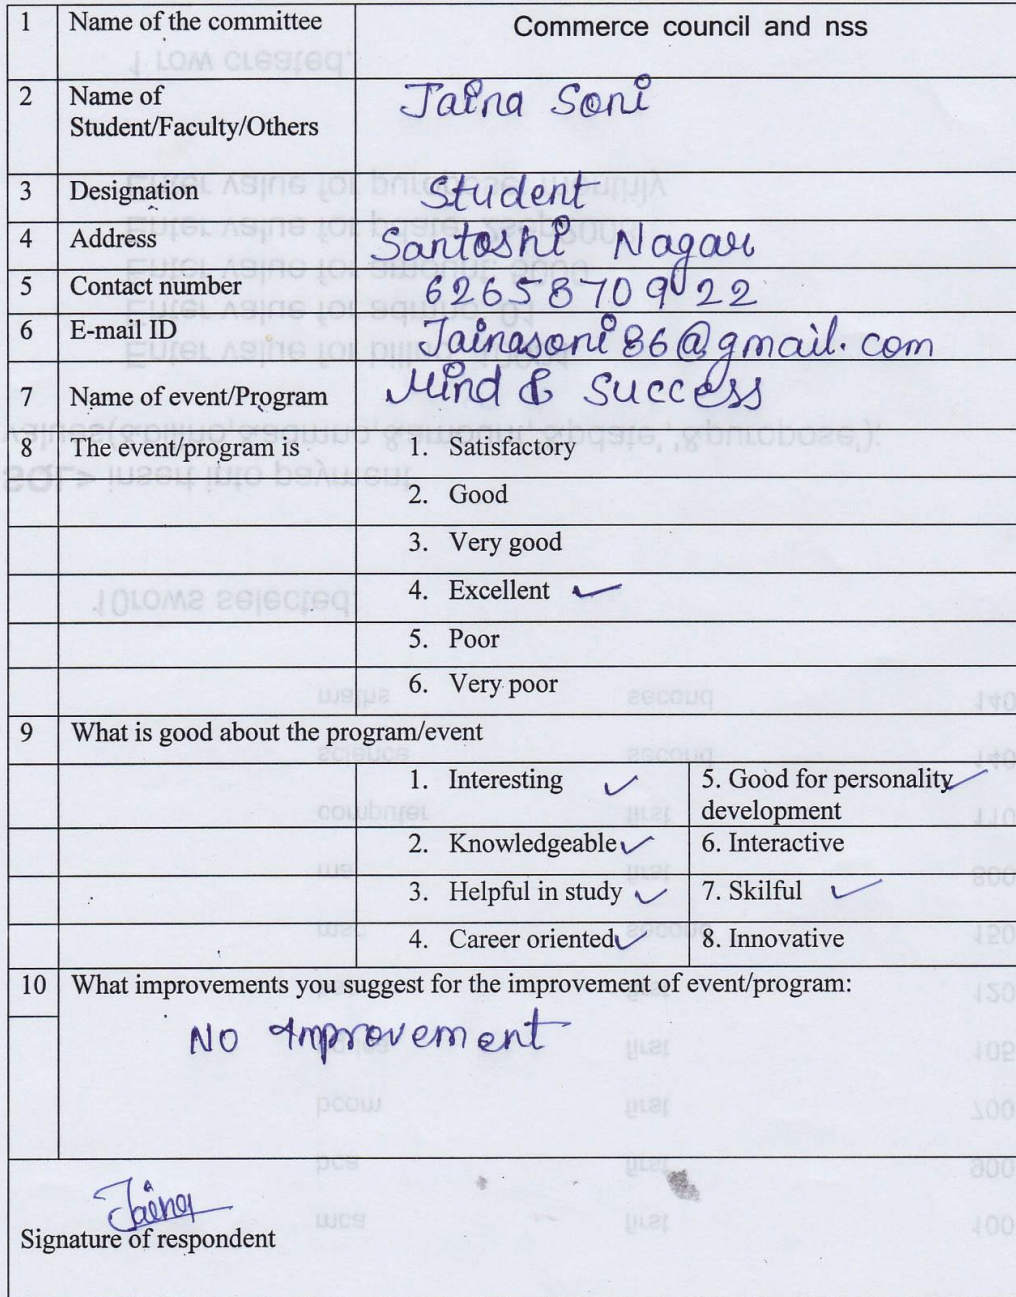 1 Name of the committee Commerce council and nss
2 Name of Jaina Soni
Student/Faculty/Others
3 Designation Student
4 Address Santoshi Nagar
5 Contact number 6265870922
6 E-mail ID Jainasoni86@gmail.com
7 Name of event/Program Mind & Success
8 The event/program is 1. Satisfactory
2. Good
3. Very good
4. Excellent ✓
5. Poor
6. Very poor
9 What is good about the program/event
1. Interesting ✓ 5. Good for personality ✓
development
2. Knowledgeable ✓ 6. Interactive
3. Helpful in study ✓ 7. Skilful ✓
4. Career oriented ✓ 8. Innovative
10 What improvements you suggest for the improvement of event/program:
No Improvement
Jaina
Signature of respondent